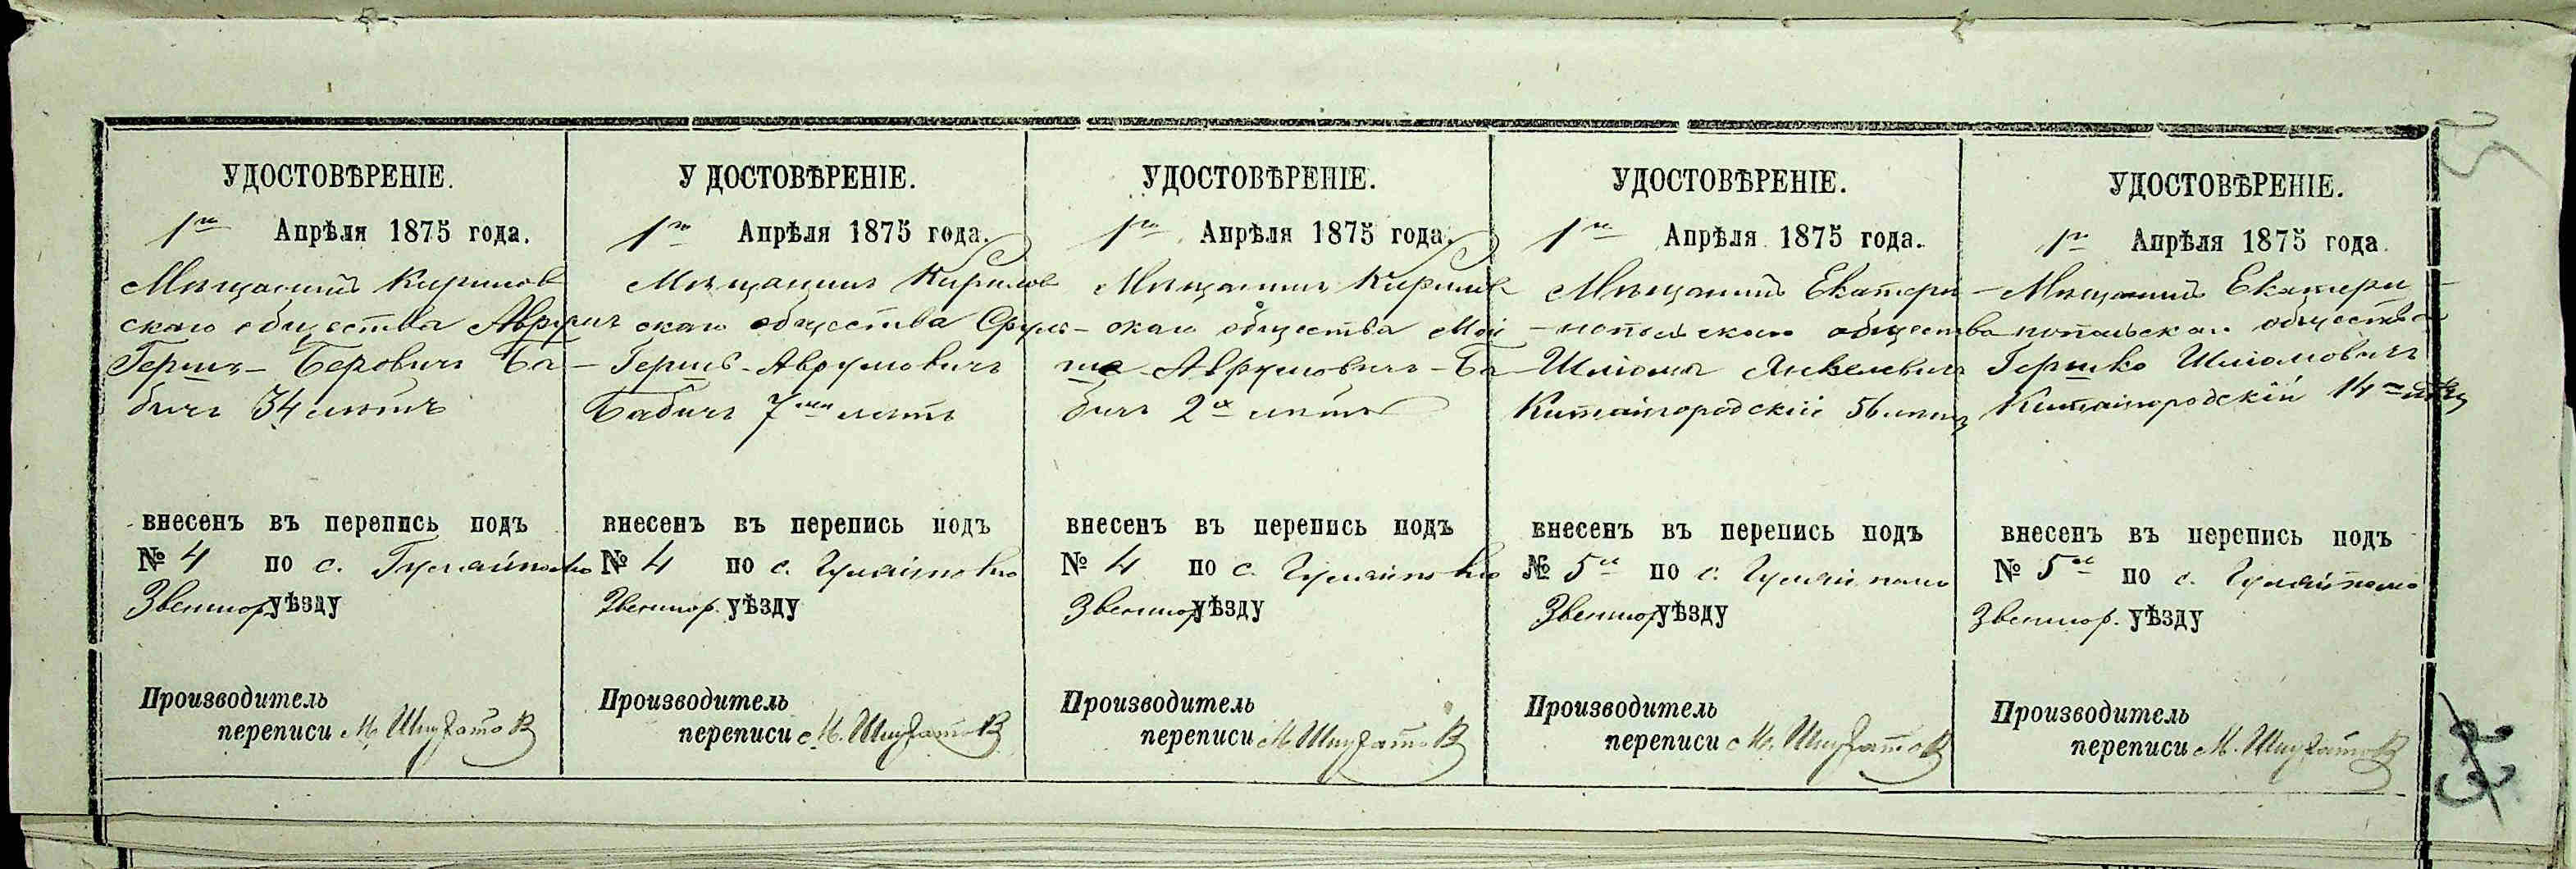 УДОСТОВѢРЕНІЕ.
1го Апрѣля 1875 года.
Мѣщанинъ Кирилов
скаго общества Аврумъ
Гершъ-Беровичъ Ба-
бичъ 34 лѣтъ
внесенъ въ перепись подъ
№ 4 по с. Гусай
Звениго. уѣзду
Производитель
переписи М.
УДОСТОВѢРЕНІЕ.
1го Апрѣля 1875 года.
Мѣщанинъ Кирилов
скаго общества Сруль-
Гершъ-Аврумовичъ
Бабичъ 7ми лѣтъ
внесенъ въ перепись подъ
№ 4 по с.
Звениго. уѣзду
Производитель
переписи М.
УДОСТОВѢРЕНІЕ.
1го Апрѣля 1875 года.
Мѣщанинъ Кирилов
скаго общества Мой
ше-Аврумовичъ-Ба
бичъ 2х лѣтъ
внесенъ въ перепись подъ
№ 4 по с.
Звениго. уѣзду
Производитель
переписи М.
УДОСТОВѢРЕНІЕ.
1го Апрѣля 1875 года.
Мѣщанинъ Екатери-
нопольскаго общества
Шліома Янкелевичъ
Китайгородскій 56 лѣтъ
внесенъ въ перепись подъ
№ 5й по с.
Звениго. уѣзду
Производитель
переписи М.
УДОСТОВѢРЕНІЕ.
1го Апрѣля 1875 года.
Мѣщанинъ Екатери-
нопольскаго общества
Гершко Шліомовичъ
Китайгородскій 14 лѣтъ
внесенъ въ перепись подъ
№ 5й по с.
Звениго. уѣзду
Производитель
переписи М.